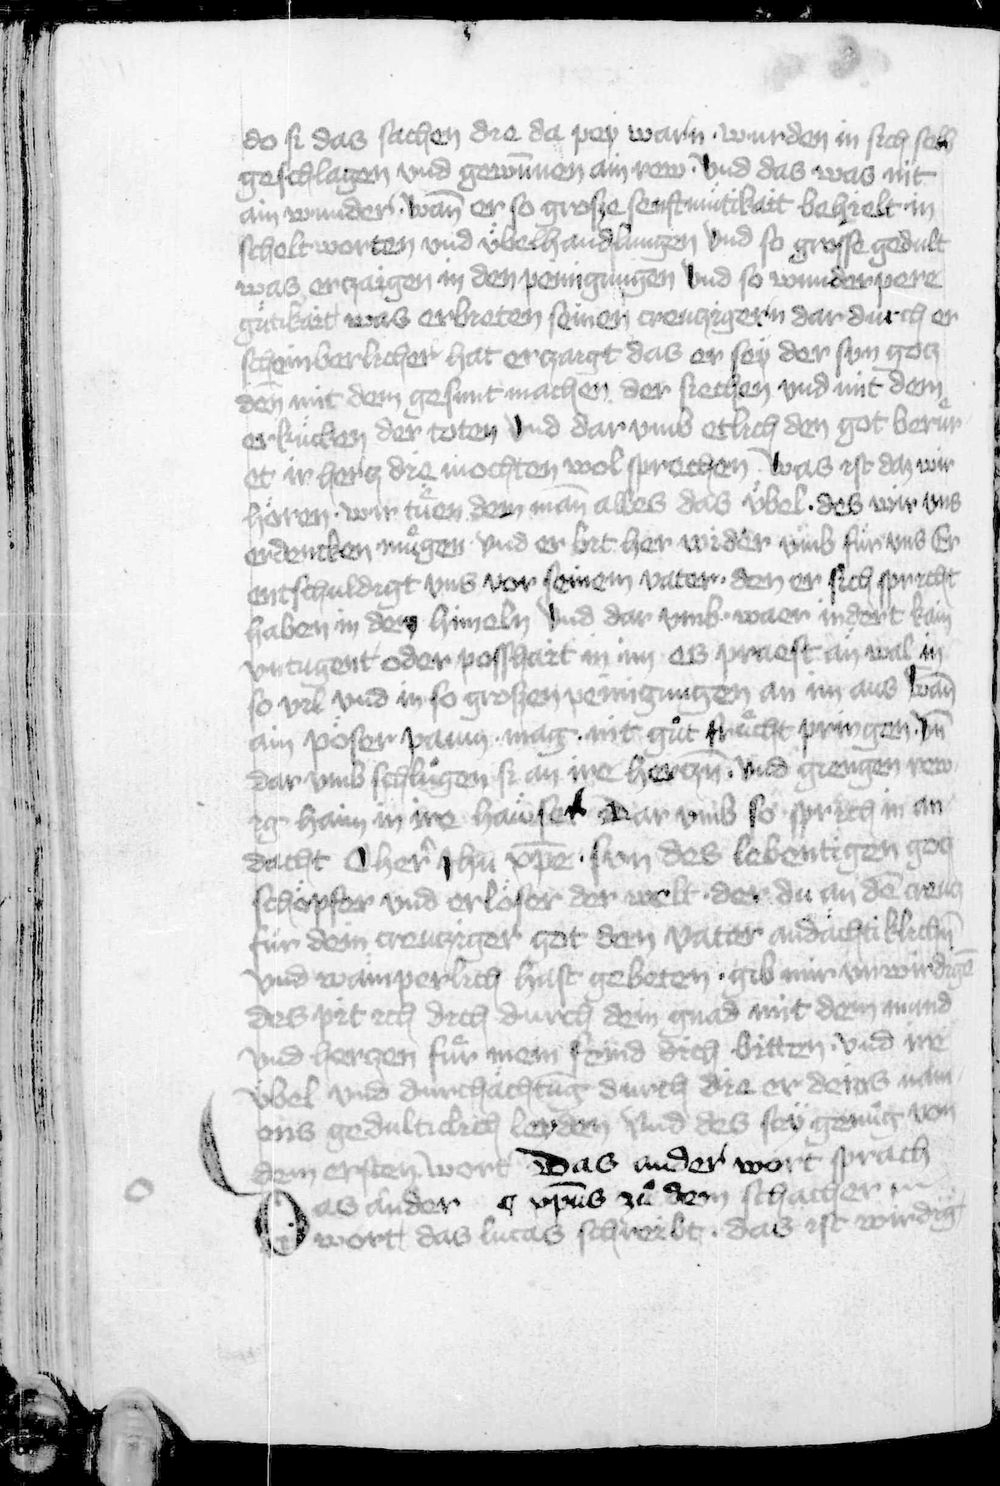 do si das sachen die da pey warn · wurden in sich selb
geschlagen vnd gewūnnen ain rew · Vnd das was nit
ain wunder · Wan̄ er so grosze senftmütikait behielt in
schelt worten vnd übelhandlungen Vnd so grosse gedult
was erczaigen in den peinigungen Vnd so wunderpere
gütikait was erbieten seinen creuczigern dar durch er
scheinberlicher hat erczaigt das er sey der sun gocz
den̄ mit dem gesunt machen der siechen vnd mit dem
erkücken der toten Vnd dar vmb etlich den got berůr
et ir hercz die mochten wol sprechen · Was ist daz wir
hören · wir tůen dem man̄ alles das übel · des wir vns
erdencken mügen · vnd er bit her wider vmb für vns Er
entschuldigt vns vor seinem vater · den er sich spricht
haben in den himeln Vnd dar vmb · waer indert kain
vntugent oder posshait in im es praest an wal in
so vil vnd in so groszen peinigungen an im aus Wan̄
ain pöser paum · mag · nit gůt frücht pringen · Vn̄
dar vmb schlůgen si an ire herczn̄ · Vnd giengen rew
ig haim in ire haüser Dar vmb so sprich in an
dacht O her̄ ihu xp̄e · sun des lebentigen gocz
schöpfer vnd erlöser der welt · der du an dē creucz
für dein creucziger got den vater andächtiklichn̄
vnd wainperlich hast gebeten · gib mir vnwirdigē
des pit ich dich durch dein gnad mit dem mund
vnd herczen für mein feind dich bitten · vnd ire
übel vnd durchächtung durch die er deines nam
ens gedulticlich leyden Vnd des sey genůg von
dem ersten wort Das ander wort sprach
Das ander ¶ xp̄us zů dem schacher
wort das lucas schreibt · das ist wirdig